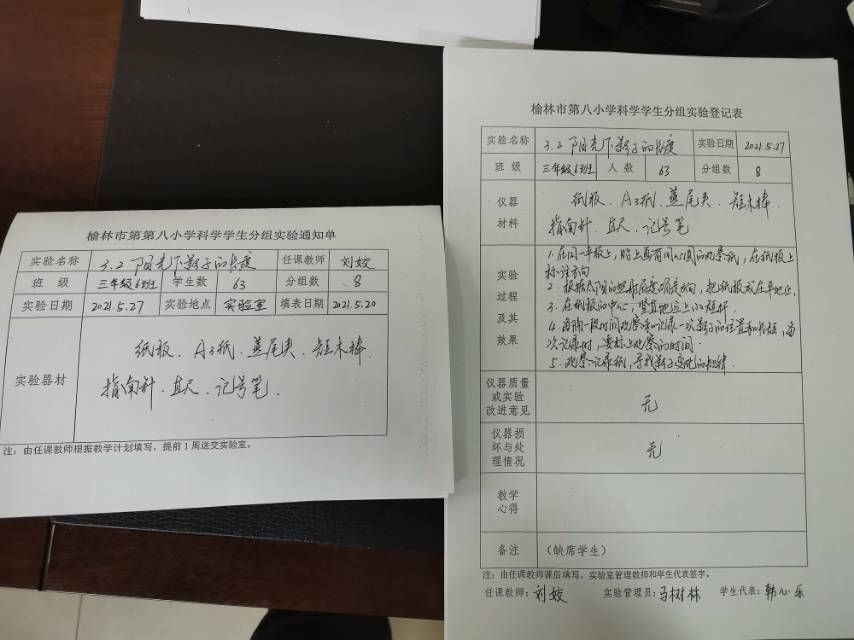 榆林市第第八小学科学学生分组实验通知单
实验名称 3.2 阳光下影子的长度 任课教师 刘姣
班 级 三年级6班 学生数 63 分组数 8
实验日期 2021.5.27 实验地点 实验室 填表日期 2021.5.20
实验器材
纸板、A3纸、燕尾夹、短木棒
指南针、直尺、记号笔
注：由任课教师根据教学计划填写，提前1周送交实验室。
榆林市第八小学科学学生分组实验登记表
实验名称 3.2 阳光下影子的长度 实验日期 2021.5.27
班 级 三年级6班 人 数 63 分组数 8
仪器
材料
纸板、A3纸、燕尾夹、短木棒
指南针、直尺、记号笔
实验
过程
及其
效果
1.在同一平板上，贴上画有同心圆的观察纸，在纸板上
标注方向
2.根据太阳的照射角度确定方向，把纸板放在平地上
3.在纸板的中心，竖直地立上小短杆
4.每隔一段时间观察和记录一次影子的位置和长短，每
次记录时，要标上观察的时间
5.观察记录纸，寻找影子变化的规律
仪器质量
或实验
改进意见
无
仪器损
坏与处
理情况
无
教学
心得
备注 （缺席学生）
注：由任课教师课后填写，实验室管理教师和学生代表签字。
任课教师：刘姣 实验管理员：马树林 学生代表：韩心乐